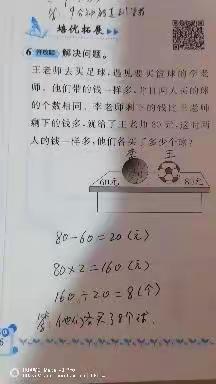 培优拓展
6 解决问题。
王老师去买足球,遇见要买篮球的李老
师。他们带的钱一样多,并且两人买的球
的个数相同。李老师剩下的钱比王老师
剩下的钱多,就给了王老师80元,这时两
人的钱一样多,他们各买了多少个球?
李 王
60元 80元
80-60=20(元)
80×2=160(元)
160÷20=8(个)
答:他们各买了8个球.
HUAWEI Mate